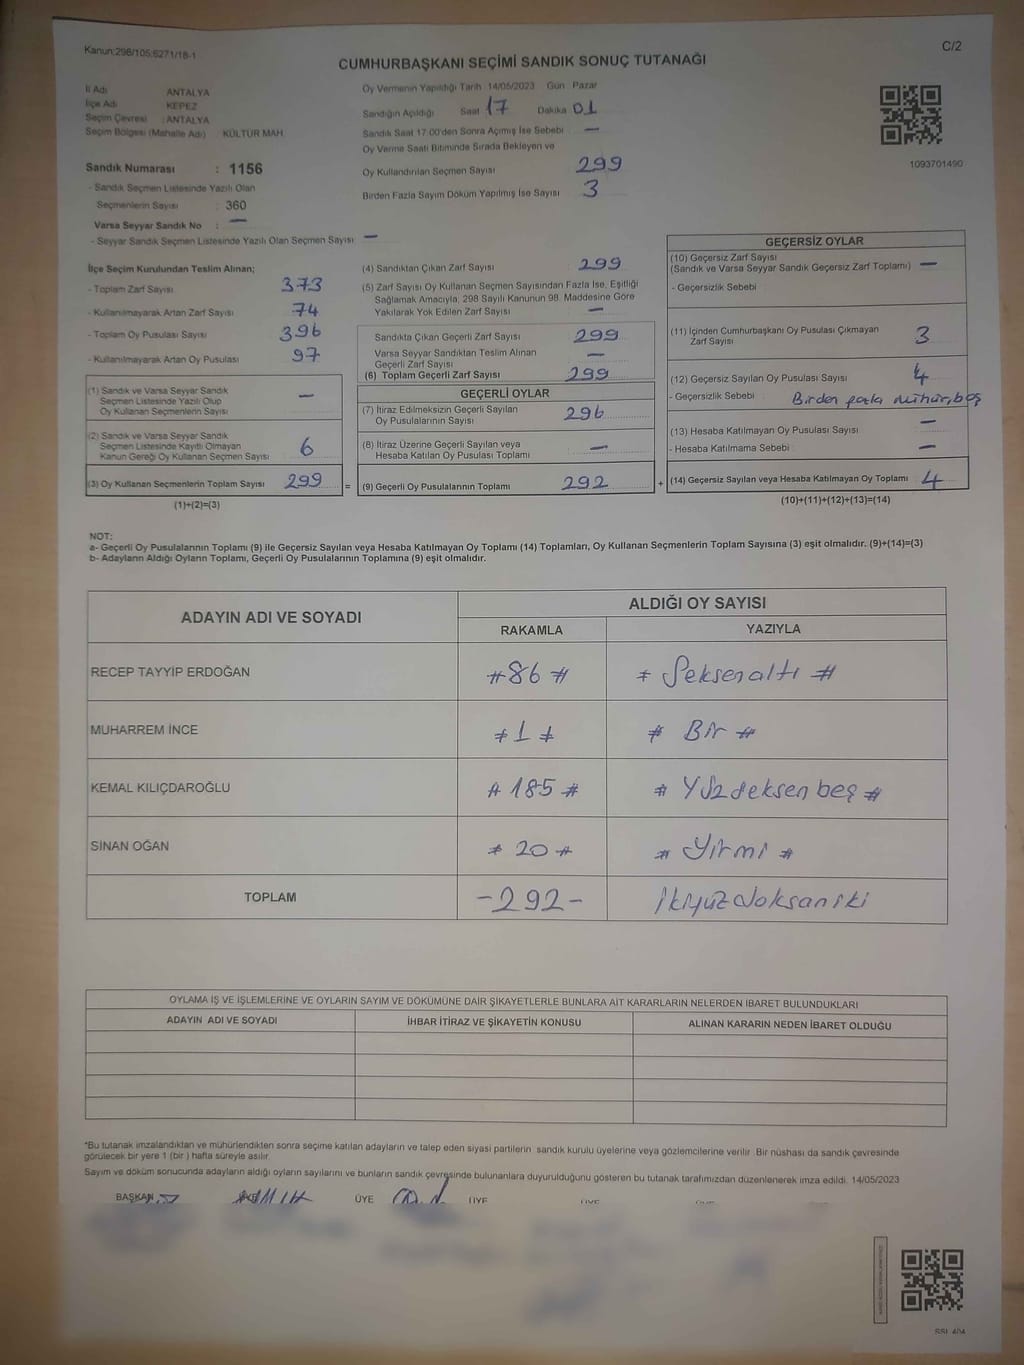 Kanun:298/105;6271/18-1
C/2
CUMHURBAŞKANI SEÇİMİ SANDIK SONUÇ TUTANAĞI
İl Adı ANTALYA
İlçe Adı KEPEZ
Seçim Çevresi : ANTALYA
Seçim Bölgesi (Mahalle Adı) KÜLTÜR MAH
Sandık Numarası : 1156
- Sandık Seçmen Listesinde Yazılı Olan
Seçmenlerin Sayısı : 360
Varsa Seyyar Sandık No : —
- Seyyar Sandık Seçmen Listesinde Yazılı Olan Seçmen Sayısı : —
Oy Vermenin Yapıldığı Tarih : 14/05/2023 Gün : Pazar
Sandığın Açıldığı Saat 17 Dakika 01
Sandık Saat 17.00'den Sonra Açılmış İse Sebebi —
Oy Verme Saati Bitiminde Sırada Bekleyen ve
Oy Kullandırılan Seçmen Sayısı 299
Birden Fazla Sayım Döküm Yapılmış İse Sayısı 3
1093701490
İlçe Seçim Kurulundan Teslim Alınan;
- Toplam Zarf Sayısı 373
- Kullanılmayarak Artan Zarf Sayısı 74
- Toplam Oy Pusulası Sayısı 396
- Kullanılmayarak Artan Oy Pusulası 97
(1) Sandık ve Varsa Seyyar Sandık
Seçmen Listesinde Yazılı Olup
Oy Kullanan Seçmenlerin Sayısı —
(2) Sandık ve Varsa Seyyar Sandık
Seçmen Listesinde Kayıtlı Olmayan
Kanun Gereği Oy Kullanan Seçmen Sayısı 6
(3) Oy Kullanan Seçmenlerin Toplam Sayısı 299
(1)+(2)=(3)
(4) Sandıktan Çıkan Zarf Sayısı 299
(5) Zarf Sayısı Oy Kullanan Seçmen Sayısından Fazla İse, Eşitliği
Sağlamak Amacıyla, 298 Sayılı Kanunun 98. Maddesine Göre
Yakılarak Yok Edilen Zarf Sayısı —
Sandıkta Çıkan Geçerli Zarf Sayısı 299
Varsa Seyyar Sandıktan Teslim Alınan
Geçerli Zarf Sayısı —
(6) Toplam Geçerli Zarf Sayısı 299
GEÇERLİ OYLAR
(7) İtiraz Edilmeksizin Geçerli Sayılan
Oy Pusulalarının Sayısı 296
(8) İtiraz Üzerine Geçerli Sayılan veya
Hesaba Katılan Oy Pusulası Toplamı —
= (9) Geçerli Oy Pusulalarının Toplamı 292 +
GEÇERSİZ OYLAR
(10) Geçersiz Zarf Sayısı
(Sandık ve Varsa Seyyar Sandık Geçersiz Zarf Toplamı) —
- Geçersizlik Sebebi
(11) İçinden Cumhurbaşkanı Oy Pusulası Çıkmayan
Zarf Sayısı 3
(12) Geçersiz Sayılan Oy Pusulası Sayısı 4
- Geçersizlik Sebebi : Birden fazla mühür, boş
(13) Hesaba Katılmayan Oy Pusulası Sayısı —
- Hesaba Katılmama Sebebi —
(14) Geçersiz Sayılan veya Hesaba Katılmayan Oy Toplamı 4
(10)+(11)+(12)+(13)=(14)
NOT:
a- Geçerli Oy Pusulalarının Toplamı (9) ile Geçersiz Sayılan veya Hesaba Katılmayan Oy Toplamı (14) Toplamları, Oy Kullanan Seçmenlerin Toplam Sayısına (3) eşit olmalıdır. (9)+(14)=(3)
b- Adayların Aldığı Oyların Toplamı, Geçerli Oy Pusulalarının Toplamına (9) eşit olmalıdır.
ADAYIN ADI VE SOYADI
ALDIĞI OY SAYISI
RAKAMLA YAZIYLA
RECEP TAYYİP ERDOĞAN # 86 # # Seksenaltı #
MUHARREM İNCE # 1 # # Bir #
KEMAL KILIÇDAROĞLU # 185 # # Yüzseksenbeş #
SİNAN OĞAN # 20 # # Yirmi #
TOPLAM -292- ikiyüzdoksaniki
OYLAMA İŞ VE İŞLEMLERİNE VE OYLARIN SAYIM VE DÖKÜMÜNE DAİR ŞİKAYETLERLE BUNLARA AİT KARARLARIN NELERDEN İBARET BULUNDUKLARI
ADAYIN ADI VE SOYADI İHBAR İTİRAZ VE ŞİKAYETİN KONUSU ALINAN KARARIN NEDEN İBARET OLDUĞU
*Bu tutanak imzalandıktan ve mühürlendikten sonra seçime katılan adayların ve talep eden siyasi partilerin sandık kurulu üyelerine veya gözlemcilerine verilir. Bir nüshası da sandık çevresinde
görülecek bir yere 1 (bir) hafta süreyle asılır.
Sayım ve döküm sonucunda adayların aldığı oyların sayılarını ve bunların sandık çevresinde bulunanlara duyurulduğunu gösteren bu tutanak tarafımızdan düzenlenerek imza edildi. 14/05/2023
BAŞKAN ÜYE ÜYE